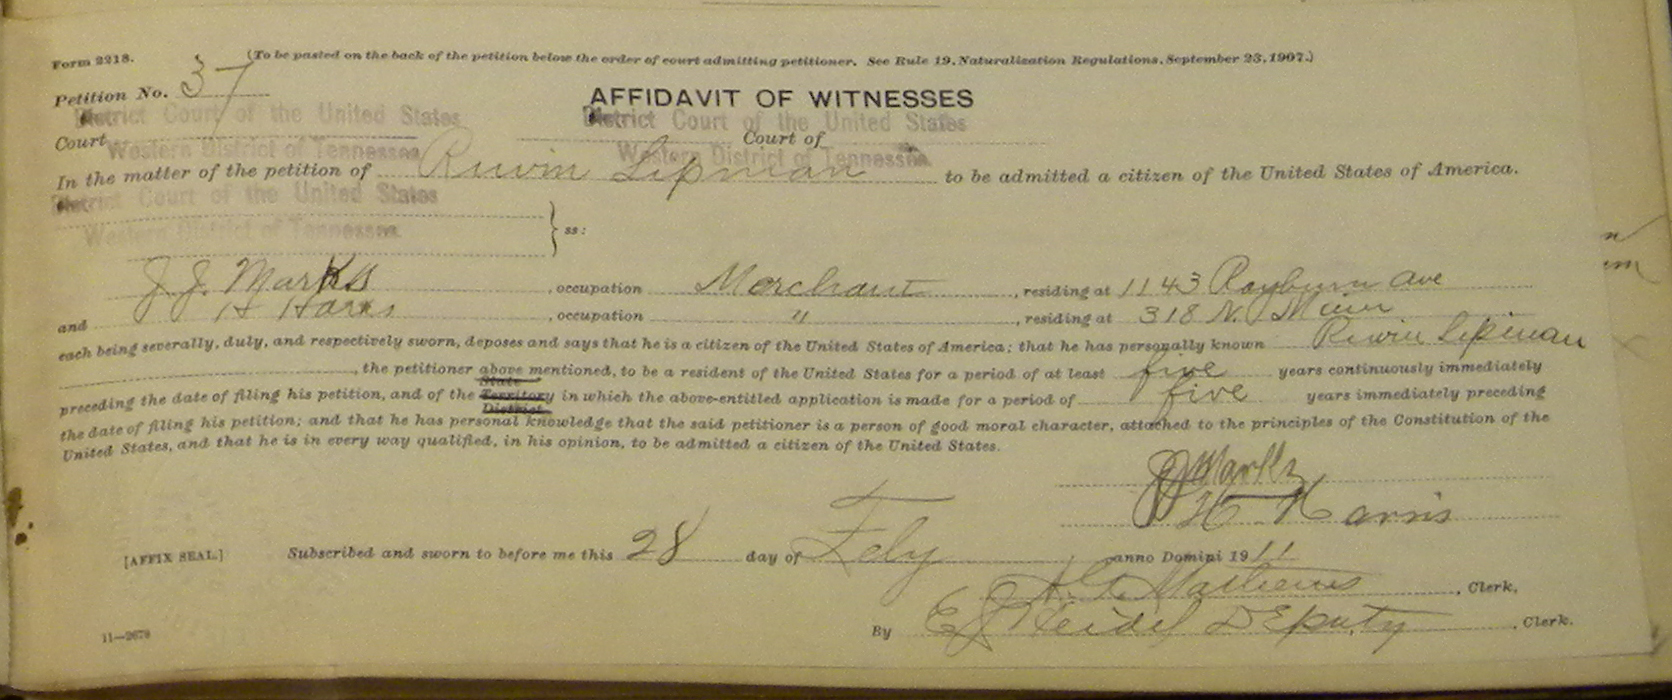 Form 2218. (To be pasted on the back of the petition below the order of court admitting petitioner. See Rule 19, Naturalization Regulations, September 23, 1907.)
Petition No. 37
AFFIDAVIT OF WITNESSES
District Court of the United States District Court of the United States
Court Court of
Western District of Tennessee Western District of Tennessee
In the matter of the petition of Ruwin Lipman to be admitted a citizen of the United States of America.
District Court of the United States
Western District of Tennessee } ss:
J. J. Marks, occupation Merchant, residing at 1143 Rayburn Ave
and H Harris, occupation ", residing at 318 N. Main
each being severally, duly, and respectively sworn, deposes and says that he is a citizen of the United States of America; that he has personally known Ruwin Lipman
, the petitioner above mentioned, to be a resident of the United States for a period of at least five years continuously immediately
State
preceding the date of filing his petition, and of the Territory in which the above-entitled application is made for a period of five years immediately preceding
District
the date of filing his petition; and that he has personal knowledge that the said petitioner is a person of good moral character, attached to the principles of the Constitution of the
United States, and that he is in every way qualified, in his opinion, to be admitted a citizen of the United States.
JJ Marks
H Harris
[AFFIX SEAL.] Subscribed and sworn to before me this 28 day of Feby anno Domini 1911
Mathews, Clerk,
11—2679 By Deputy, Clerk.